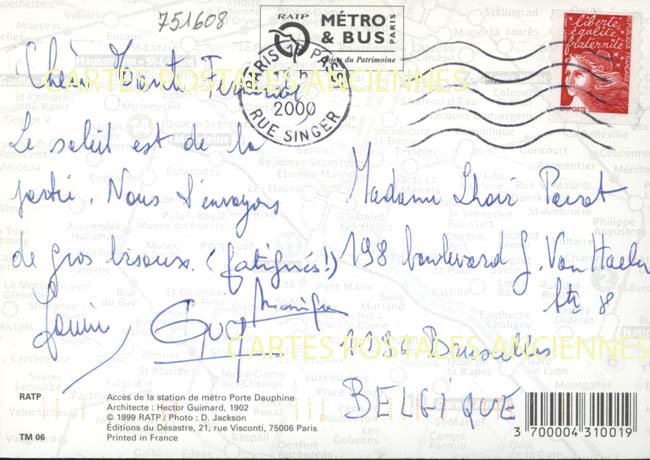 751608
RATP
MÉTRO
& BUS
PARIS
Objets du Patrimoine
PARIS
2000
RUE SINGER
liberté
égalité
fraternité
LA POSTE
CARTES POSTALES ANCIENNES
Le soleil est de la
partie. Nous t'envoyons
de gros bisous. (fatigués!)
Monique
Guy
Madame
198 boulevard G. Van Haelen
bte 8
Bruxelles
BELGIQUE
CARTES POSTALES ANCIENNES
RATP
Accès de la station de métro Porte Dauphine
Architecte : Hector Guimard, 1902
© 1999 RATP / Photo : D. Jackson
Éditions du Désastre, 21, rue Visconti, 75006 Paris
Printed in France
TM 06
3 700004 310019